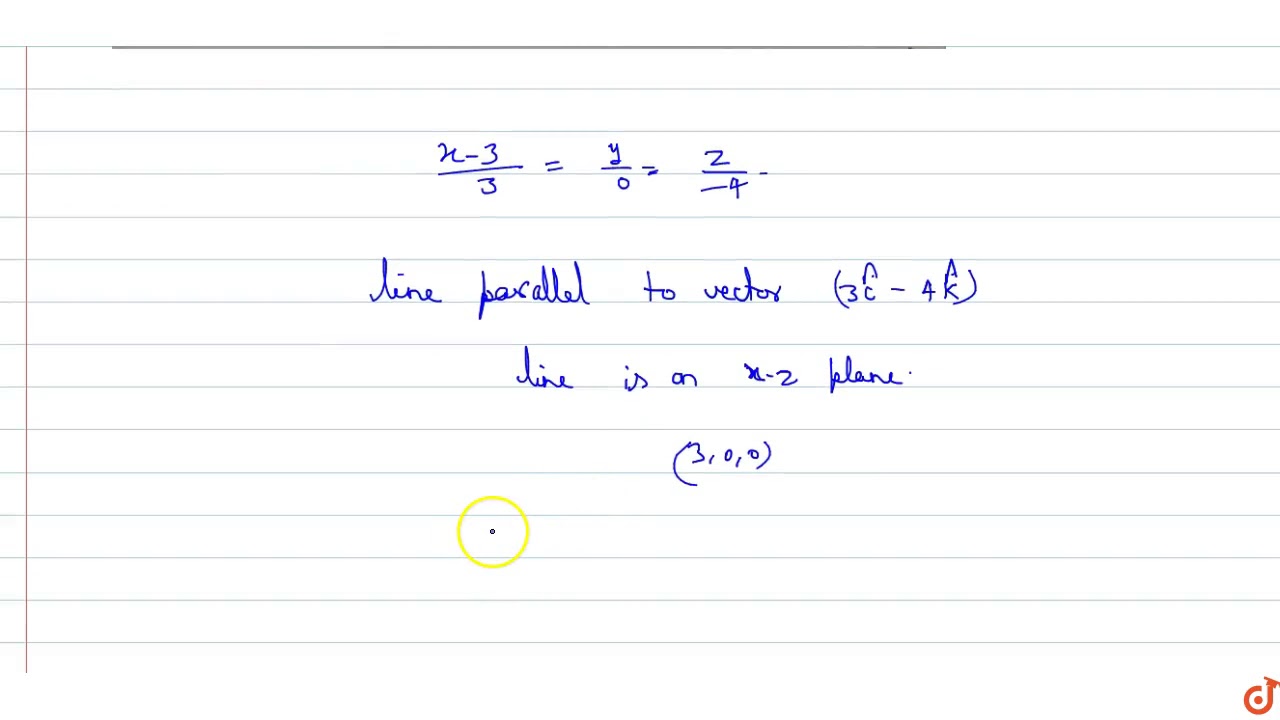 x-3/3 = y/0 = z/-4 .
line parallel to vector (3î - 4k̂)
line is on x-z plane.
(3,0,0)